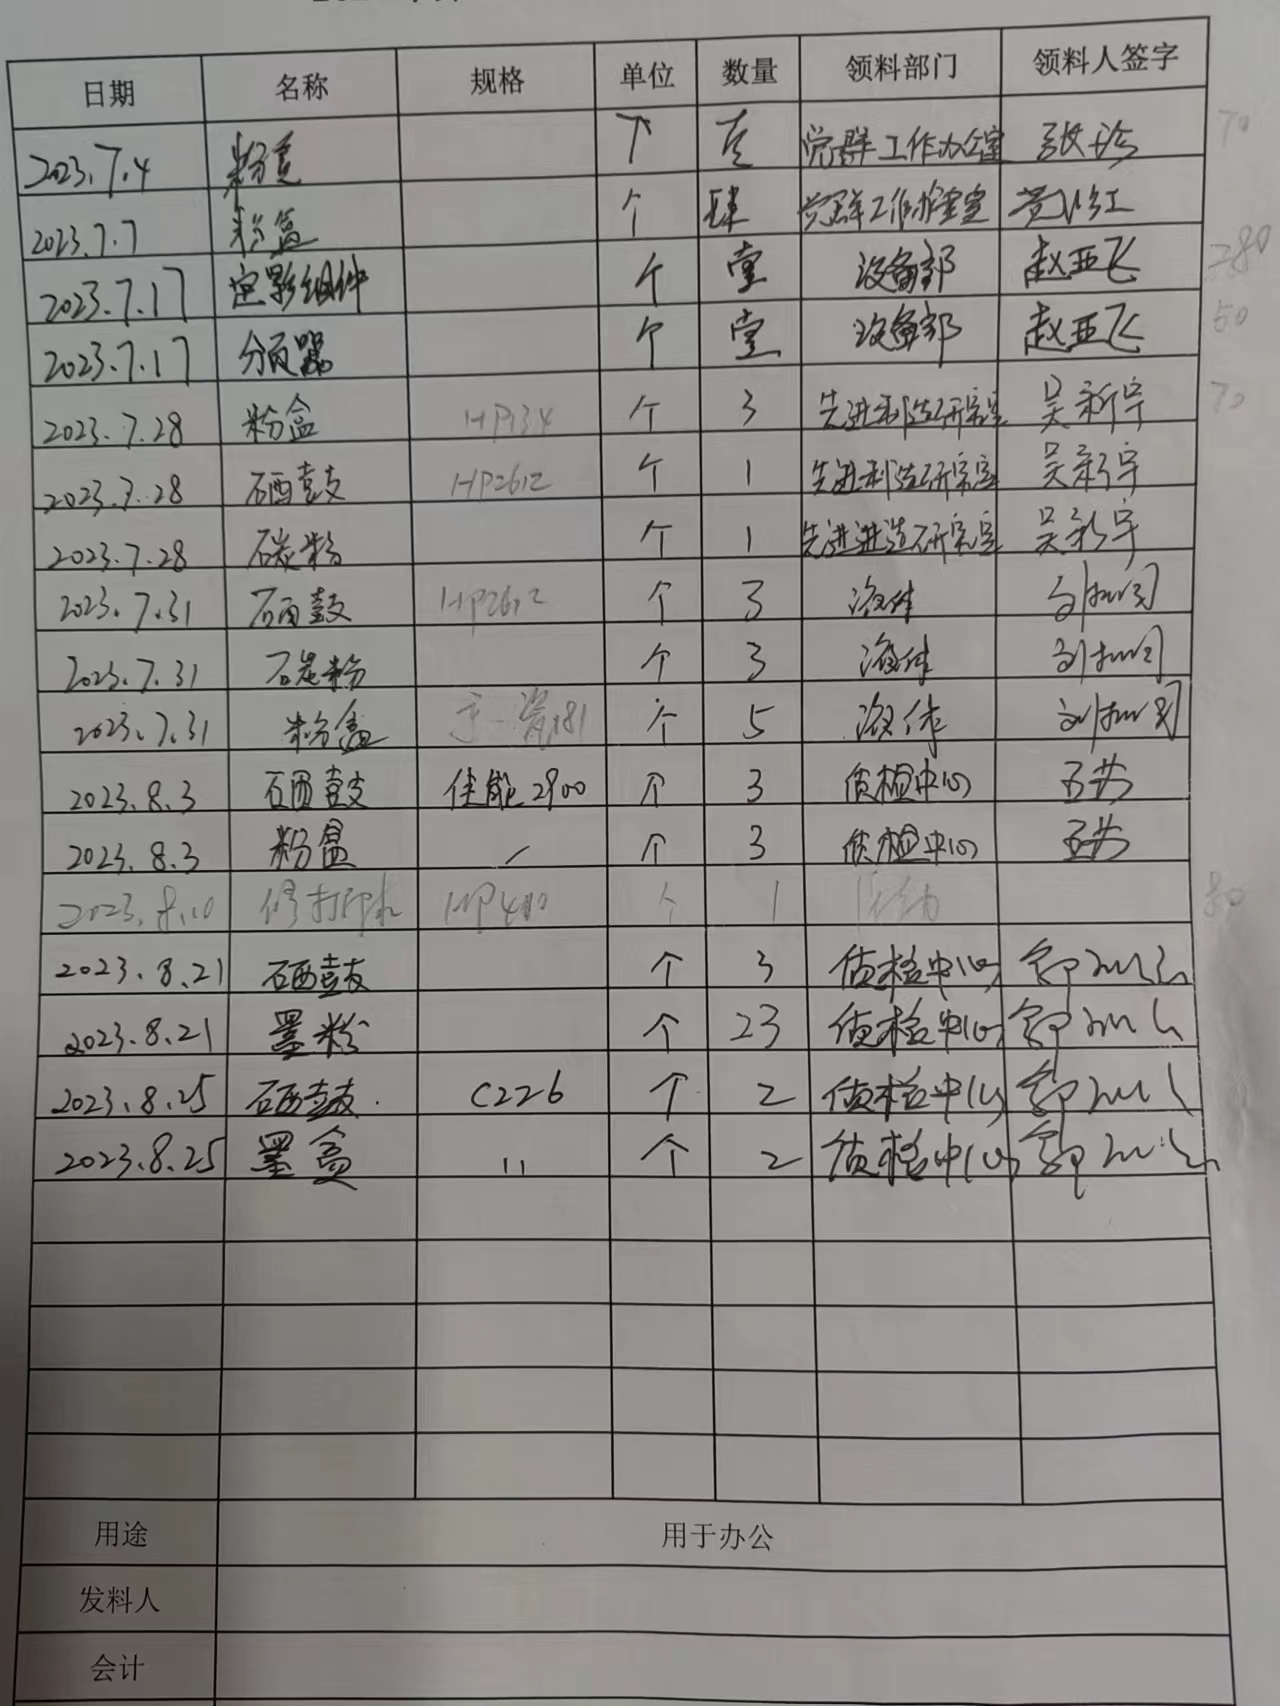 日期 名称 规格 单位 数量 领料部门 领料人签字
2023.7.4 粉盒 个 党群工作办公室 张珍 70
2023.7.7 粉盒 个 肆 党群工作办公室 黄
2023.7.17 定影组件 个 壹 设备部 赵亚飞 280
2023.7.17 分页器 个 壹 设备部 赵亚飞 50
2023.7.28 粉盒 HP134 个 3 先进制造研究室 吴新宇 70
2023.7.28 硒鼓 HP2612 个 1 先进制造研究室 吴新宇
2023.7.28 碳粉 个 1 先进进造研究室 吴新宇
2023.7.31 硒鼓 HP2612 个 3 液体 刘
2023.7.31 碳粉 个 3 液体 刘
2023.7.31 粉盒 个 5 液体 刘
2023.8.3 硒鼓 佳能2900 个 3 质检中心
2023.8.3 粉盒 / 个 3 质检中心
2023.8.10 修打印机 HP400 个 1 80
2023.8.21 硒鼓 个 3 质检中心 郭
2023.8.21 墨粉 个 23 质检中心 郭
2023.8.25 硒鼓 C226 个 2 质检中心 郭
2023.8.25 墨盒 11 个 2 质检中心 郭
用途 用于办公
发料人
会计